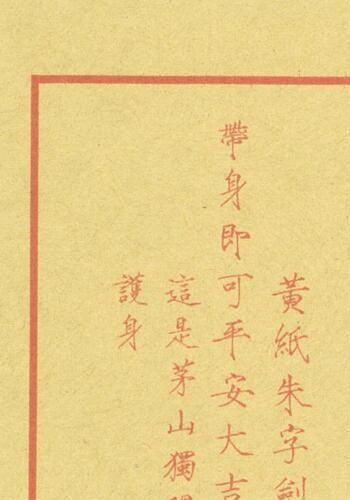 黃紙朱字
帶身即可平安大吉
這是茅山獨
護身